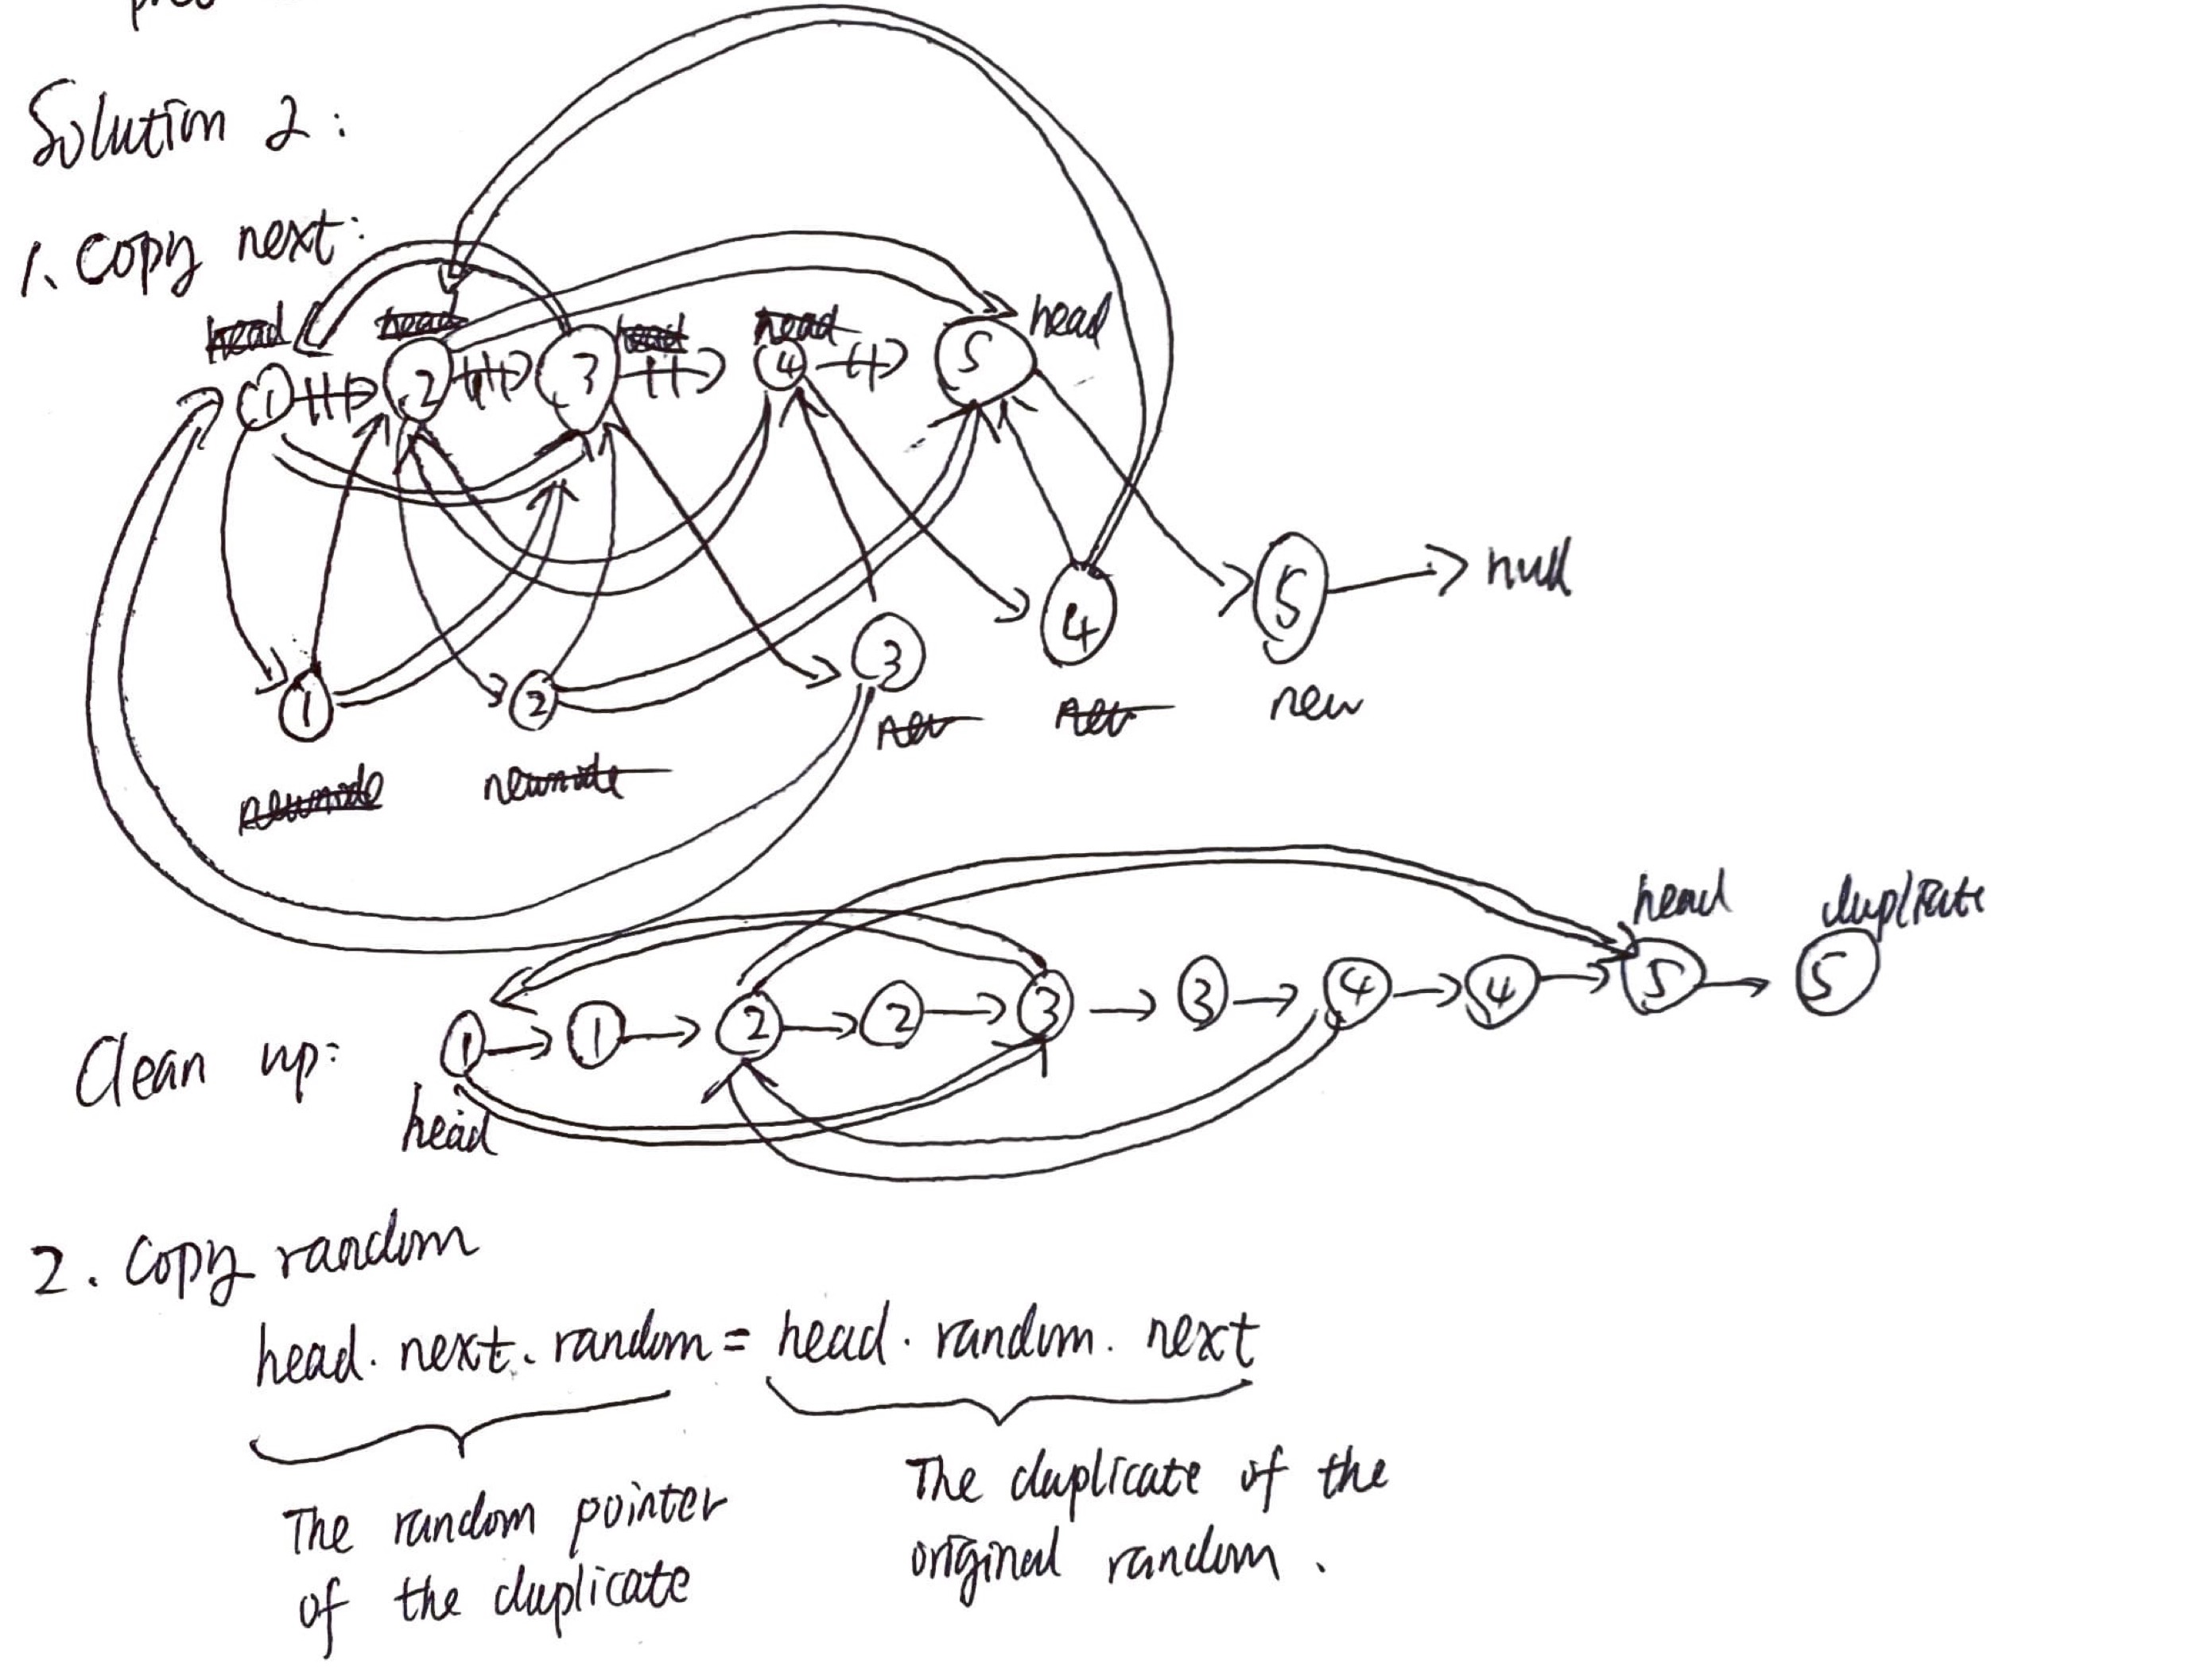 Solution 2:
1. Copy next:
head head head head head
1 2 3 4 5
1 2 3 4 5 null
newnode newnode new new new
head duplicate
Clean up: 1 1 2 2 3 3 4 4 5 5
head
2. Copy random
head. next. random = head. random. next
The random pointer
of the duplicate
The duplicate of the
original random.